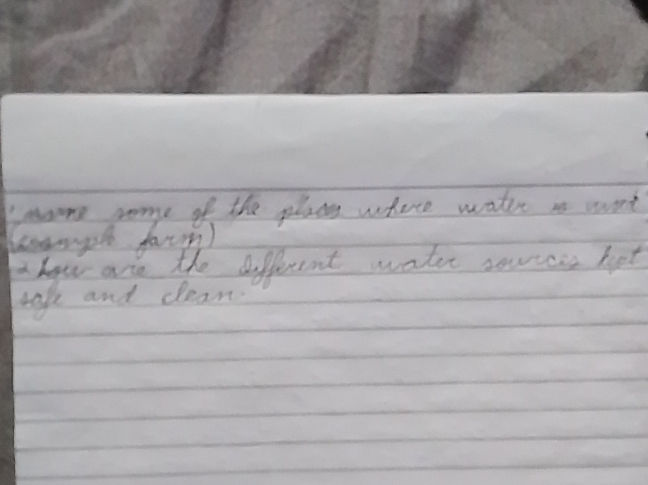 name some of the places where water is
example farm)
2 how are the different water sources kept
safe and clean.